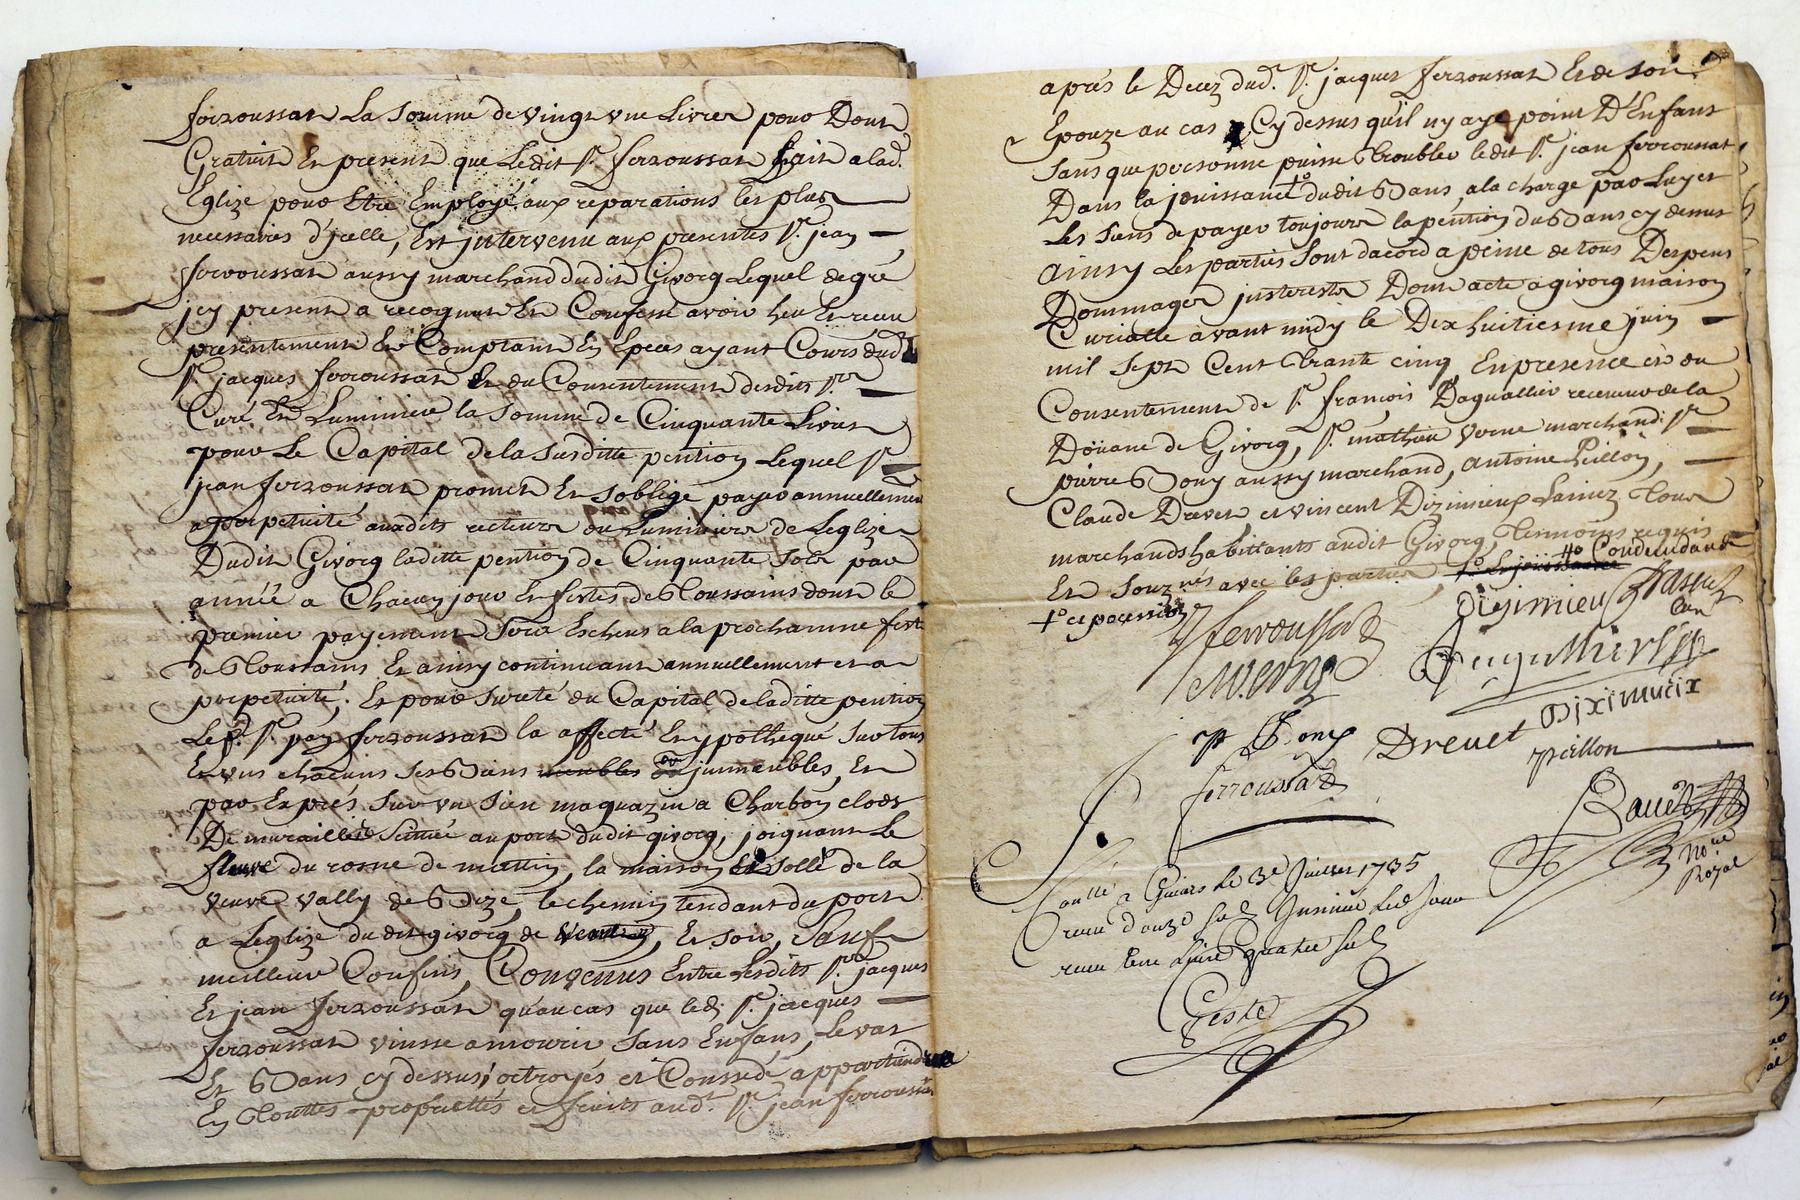 ferroussat La somme de vingt une Livres pour Dont
Gratuit Et present que Ledit Sr. ferroussat fait a lad.
Eglize pour Etre Employé aux reparations les plus
necessaires d'jcelle, Est jntervenu aux presentes Sr. jean
ferroussat aussy marchand dudit Givorq Lequel de gré
jcy present a recognut Et Confessé avoir heu Et receu
presentement Et Comptant En Especes ayant Cours dud.
Sr. jacques ferroussat Et du Consentement desdits Srs.
Curé Et Luminier la somme de Cinquante Livres
pour Le Capital de la susditte pention Lequel Sr.
jean ferroussat promet Et s'oblige payer annuellement
a perpetuité auxdits recteurs ou Luminiers de Leglize
Dudit Givorq laditte pention de Cinquante sols par
année a Chacun jour Et festes de Toussaints dont le
premier payement sera Escheus a la prochainne feste
de Toussaints Et ainsy continuant annuellement et a
perpetuité, Et pour sureté du Capital de laditte pention
Led. Sr. jean ferroussat la affecté Et ypothequé sur tous
Et uns chacuns ses Biens meubles ou jmmeubles, Et
par Exprés sur un sien maguazin a Charbon clos
De murailles Scittué au port dudit givorq, joignant Le
fleuve du rosne de mattin, la maison Et solle de la
veuve vally de Bize, le chemin tendant du port
a Leglize dudit givorq de Et soir, Sauf
meilleurs Confins, Convenus Entre Lesdits Srs. jacques
Et jean ferroussat qu'au cas que led. Sr. jacques
ferroussat vinsse a mourir sans Enfans, Le vas
Et Bans cy dessus octroyés et Conssedé appartiendra
En Touttes proprietés et fruits aud. Sr. jean ferroussat
aprés le Decez dud. Sr. jacques ferroussat Et de son
Epouze au cas Cy dessus qu'il ny aye point D'Enfans
sans que personne puisse Troubler ledit Sr. jean ferroussat
Dans la jouissance + dudit Bans, a la charge par Luy et
Les siens de payer toujours la pention du Bans cy dessus
ainsy Les parties sont dacord a peine de tous Despens
Dommages jnterests Dont acte a givorq maison
Curialle avant midy le Dix huitiesme juin
mil sept Cent Trante cinq, En presence et du
Consentement de Sr. françois Daguallier receveur de la
Doüane de Givorq, Sr. mathieu verne marchand Sr.
pierre Bony aussy marchand, antoine Peillon,
Claude Drevet et vincent Dizimieux Lainez Tous
marchands habittants audit Givorq Temoins requis
Et Souznés avec les parties
ferroussat
Dizimieu
Curé
M. verne
Daguallier
Diximieux
P Bony
Drevet
peillon
ferroussad
Notre
Royal
Contlé a Givors Le 3e Juillet 1735
receu douze sols Jnsinué Led Jour
receu Une Livre quatre sols
Geste